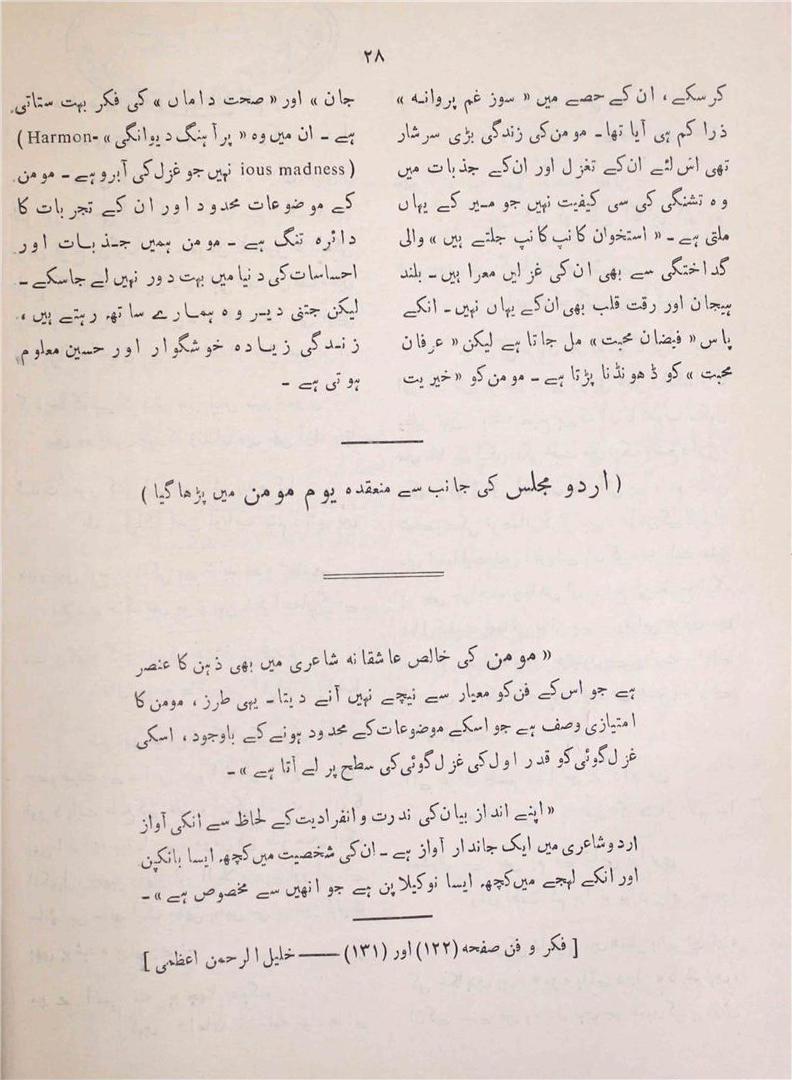 ۲۸
کرسکے، ان کے حصے میں « سوز غم پروانہ »
ذرا کم ہی آیا تھا۔ مومن کی زندگی بڑی سرشار
تھی اس لئے ان کے تغزل اور ان کے جذبات میں
وہ تشنگی کی سی کیفیت نہیں جو میر کے یہاں
ملتی ہے۔ « استخوان کانپ کانپ جلتے ہیں » والی
گداختگی سے بھی ان کی غزلیں معرا ہیں۔ بلند
ہیجان اور رقت قلب بھی ان کے یہاں نہیں۔ انکے
پاس « فیضان محبت » مل جاتا ہے لیکن « عرفان
محبت » کو ڈھونڈنا پڑتا ہے۔ مومن کو « خیریت
جان » اور « صحت داماں » کی فکر بہت ستاتی
ہے۔ ان میں وہ « پر آہنگ دیوانگی » (Harmon-
ious madness) نہیں جو غزل کی آبرو ہے۔ مومن
کے موضوعات محدود اور ان کے تجربات کا
دائرہ تنگ ہے۔ مومن ہمیں جذبات اور
احساسات کی دنیا میں بہت دور نہیں لے جاسکے۔
لیکن جتنی دیر وہ ہمارے ساتھ رہتے ہیں،
زندگی زیادہ خوشگوار اور حسین معلوم
ہوتی ہے۔
( اردو مجلس کی جانب سے منعقدہ یوم مومن میں پڑھا گیا )
« مومن کی خالص عاشقانہ شاعری میں بھی ذہن کا عنصر
ہے جو اس کے فن کو معیار سے نیچے نہیں آنے دیتا۔ یہی طرز، مومن کا
امتیازی وصف ہے جو اسکے موضوعات کے محدود ہونے کے باوجود، اسکی
غزل گوئی کو قدر اول کی غزل گوئی کی سطح پر لے آتا ہے »۔
« اپنے انداز بیان کی ندرت و انفرادیت کے لحاظ سے انکی آواز
اردو شاعری میں ایک جاندار آواز ہے۔ ان کی شخصیت میں کچھ ایسا بانکپن
اور انکے لہجے میں کچھ ایسا نوکیلاپن ہے جو انھیں سے مخصوص ہے »۔
[ فکر و فن صفحہ (۱۲۲) اور (۱۳۱) —— خلیل الرحمن اعظمی ]